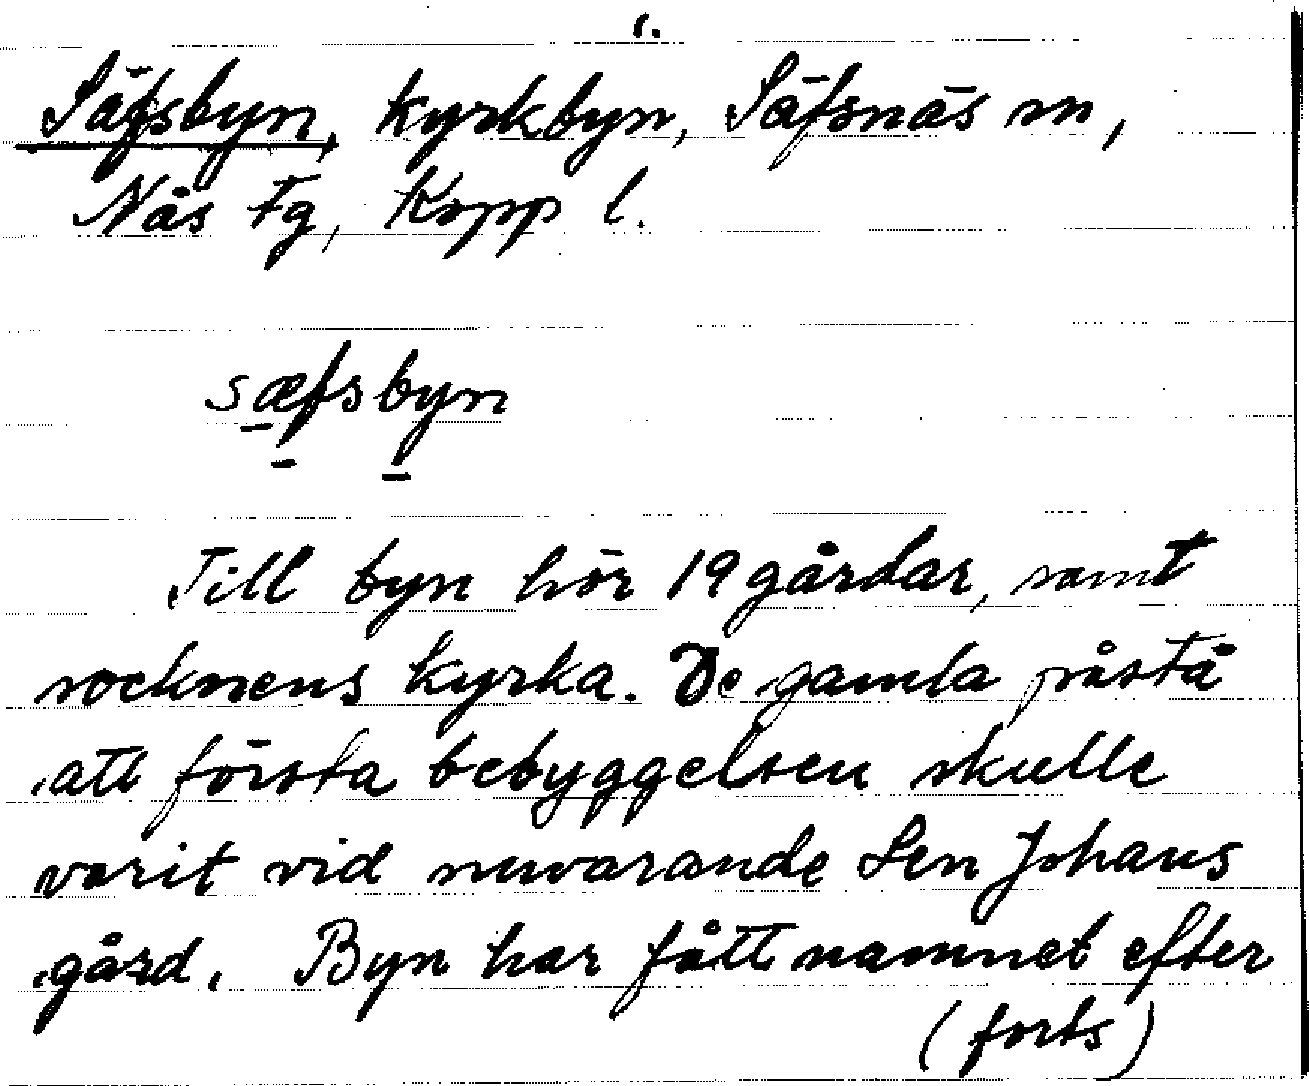 1.
Säfsbyn, kyrkbyn, Säfsnäs sn,
Näs Fg, Kopp l.
sæfsbyn
Till byn hör 19 gårdar, samt
socknens kyrka. De gamla påstå
att första bebyggelsen skulle
varit vid nuvarande Sen Johans
gård. Byn har fått namnet efter
(forts)